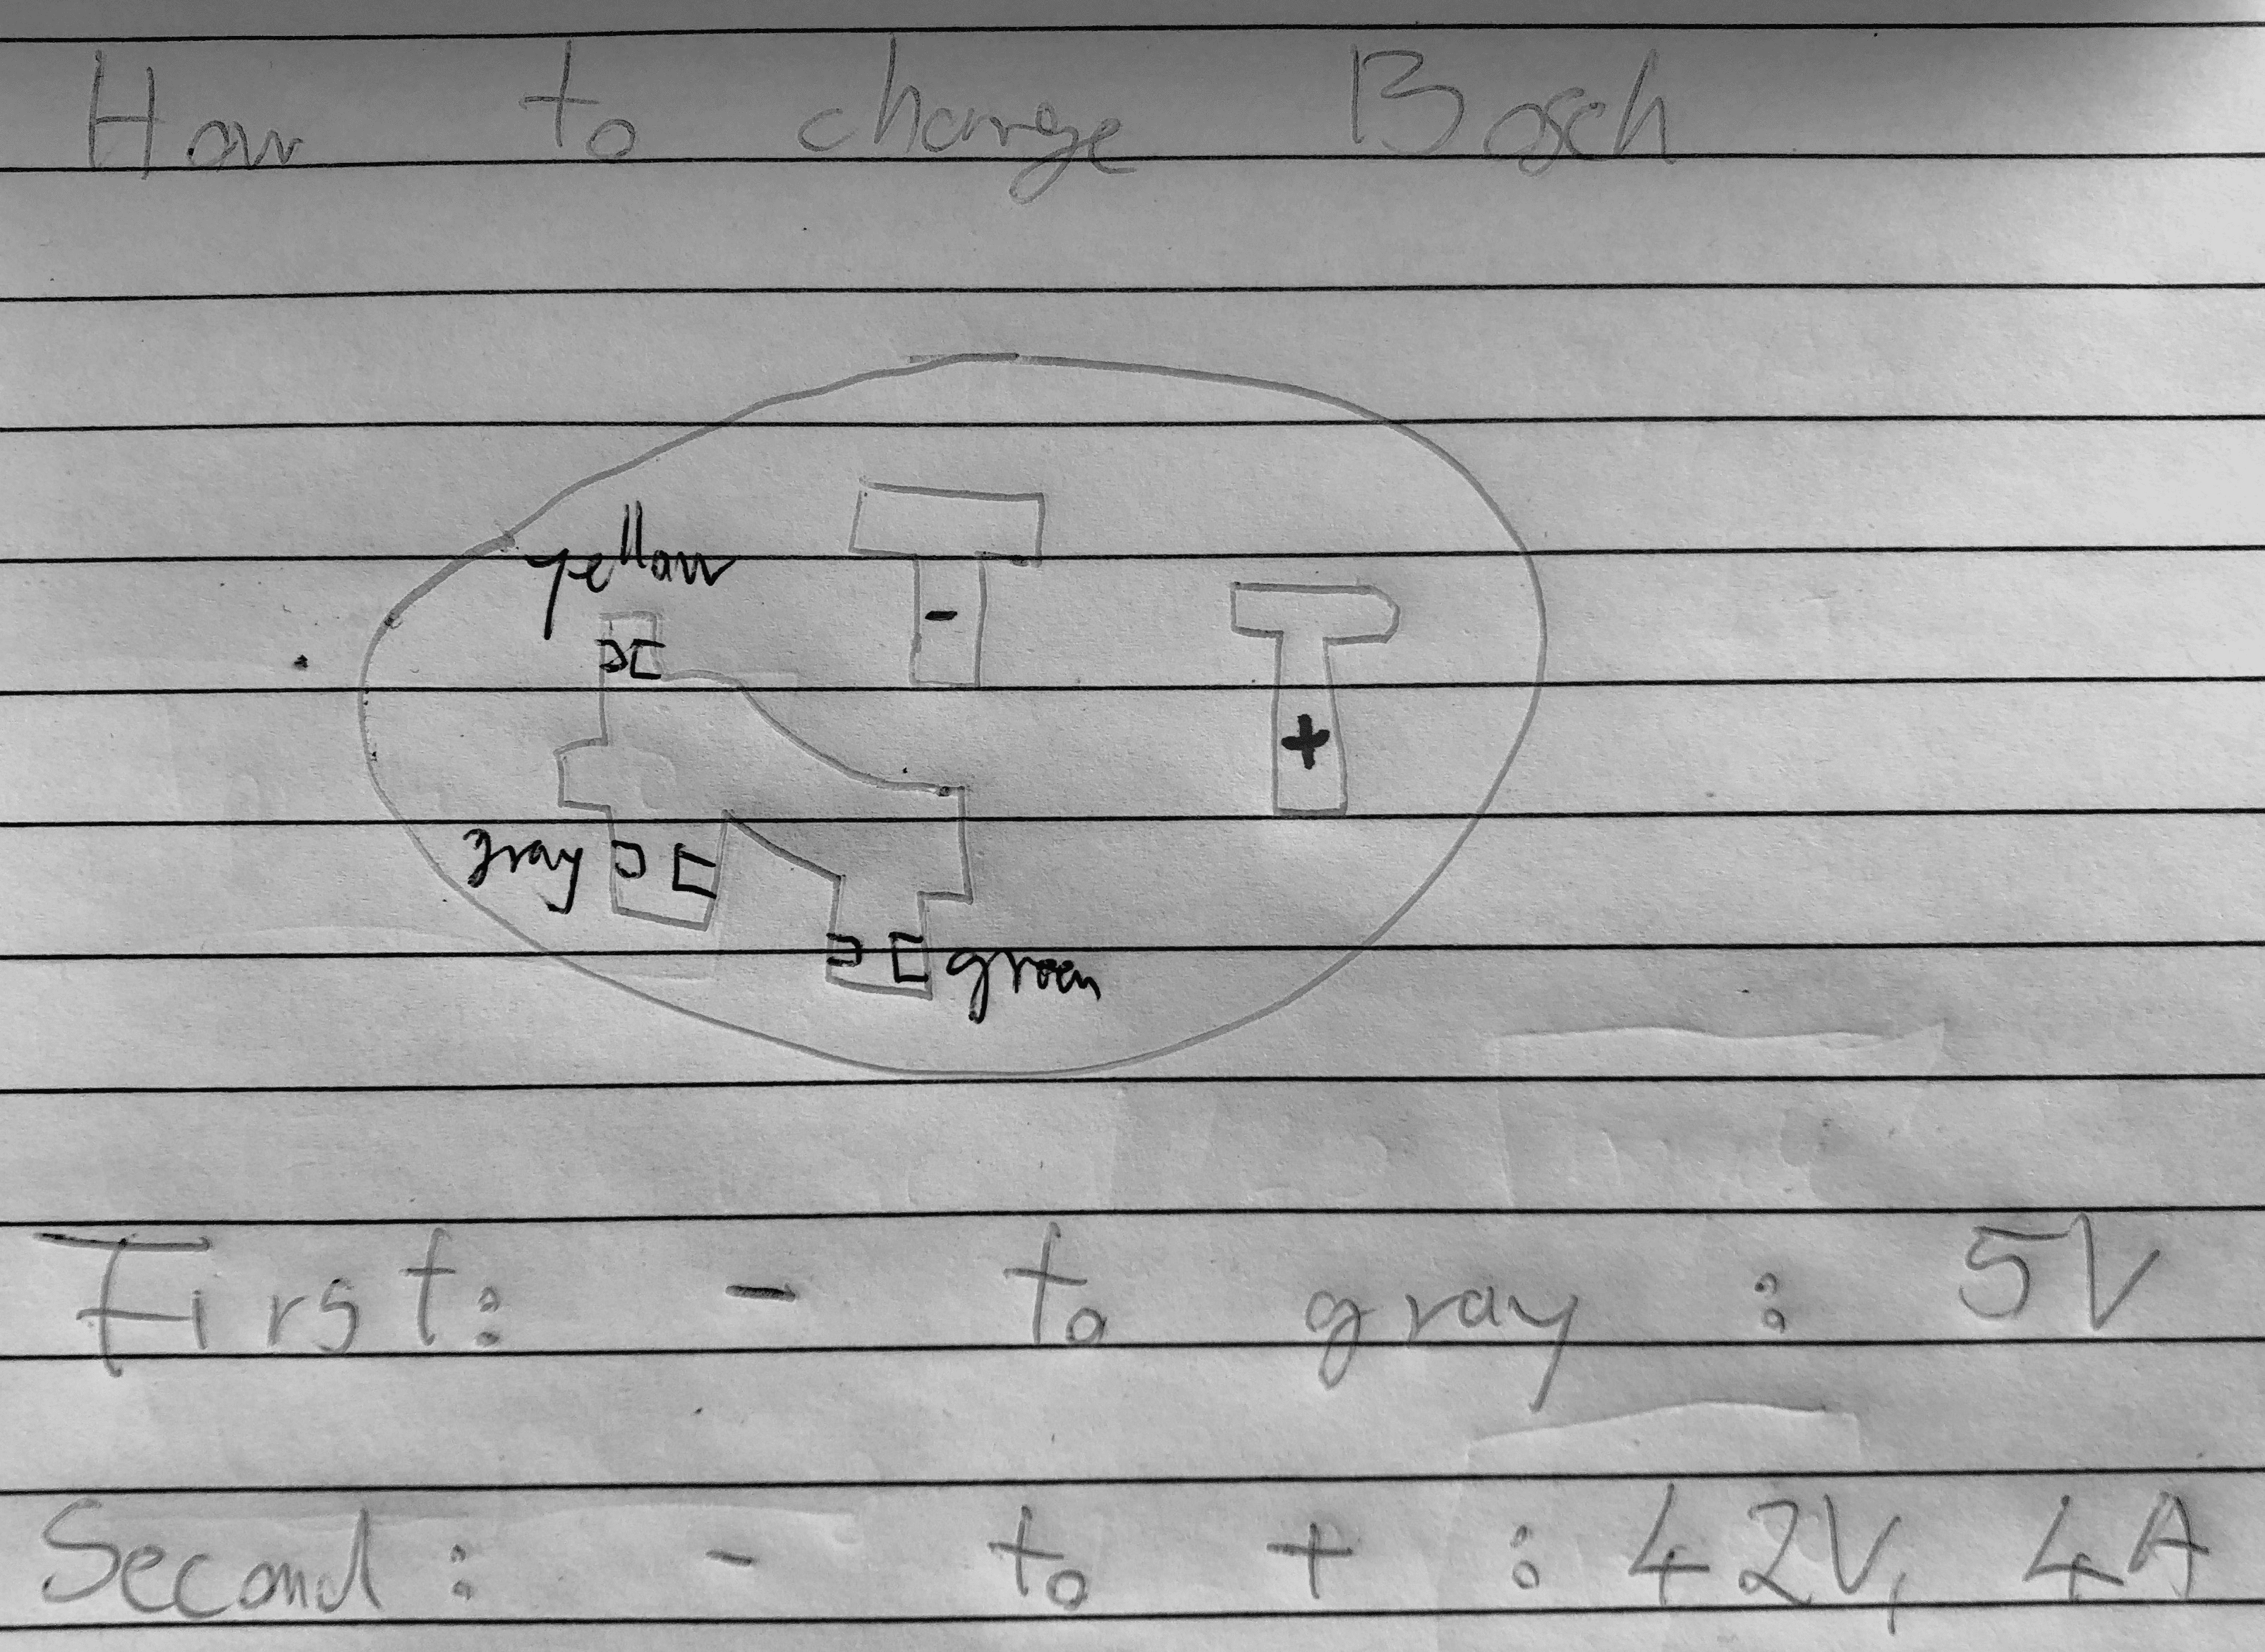 How to charge Bosch
yellow
-
+
gray
green
First: - to gray : 5V
Second: - to + : 42V, 4A